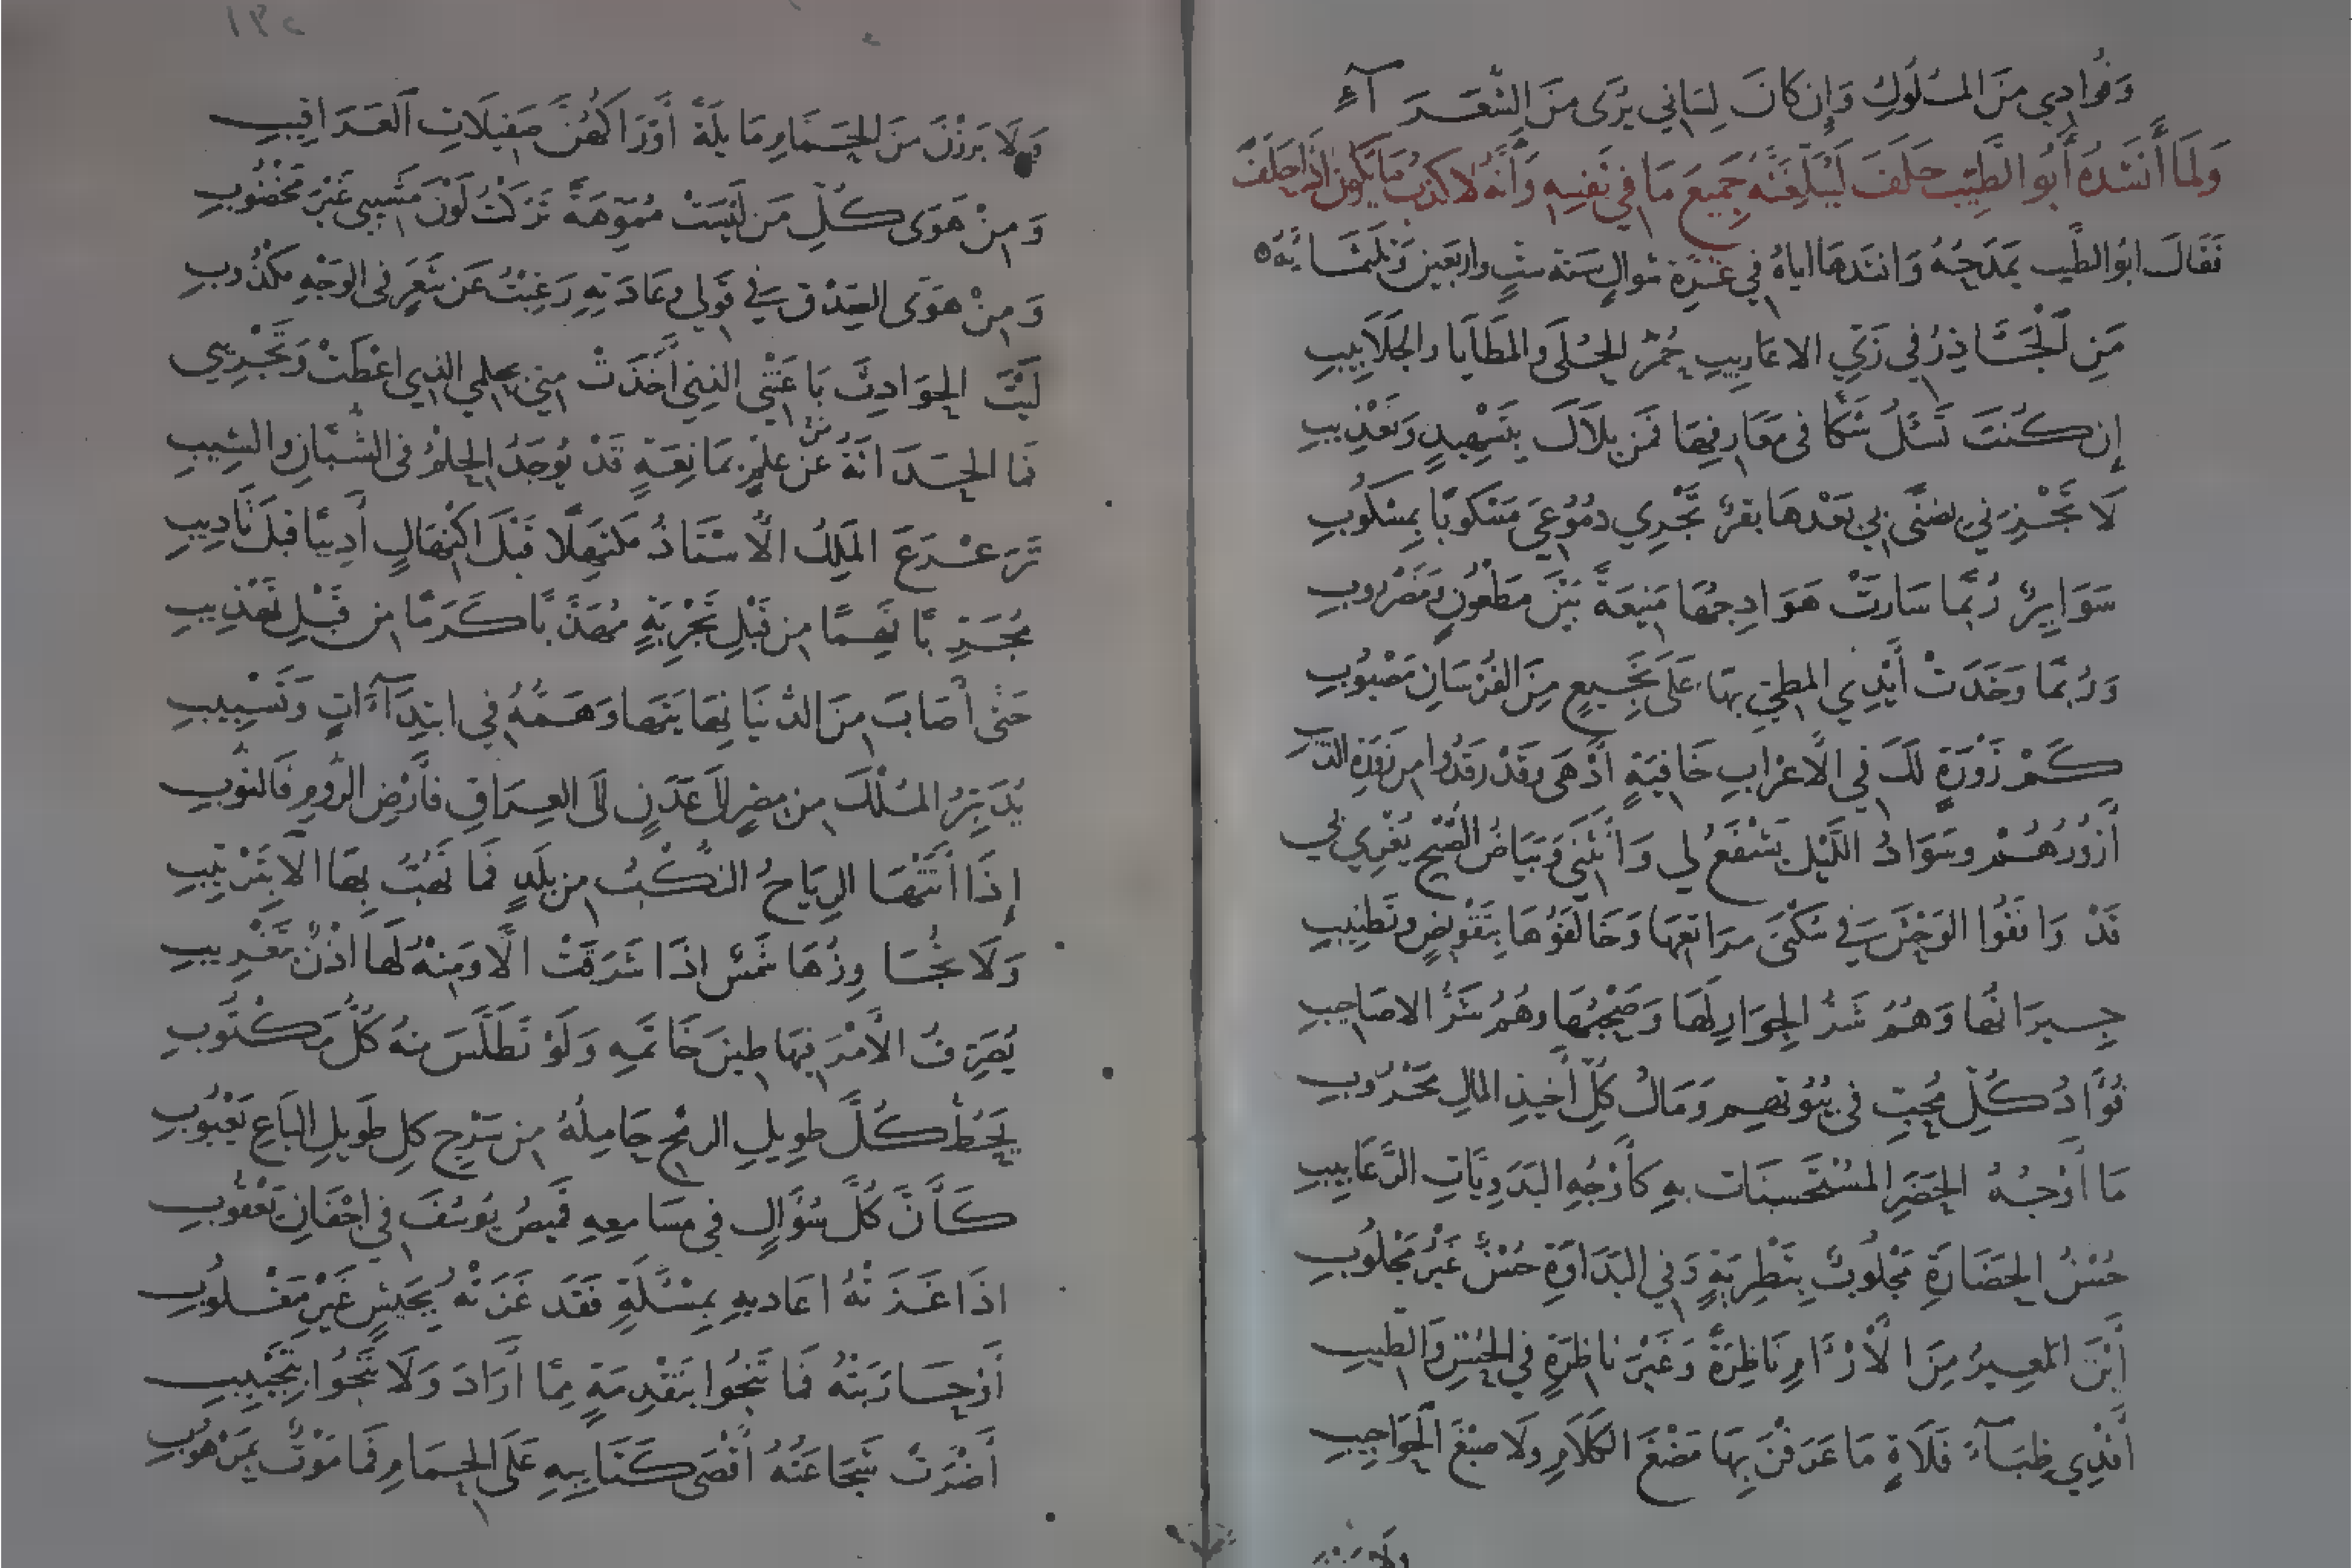 وَفُوَادِي مِنَ المُلُوكِ وَإِن كَانَ لِسَانِي يُرَى مِنَ الشُّعَرَآءِ
وَلمَا أَنشَدَهُ أَبُو الطَّيِّب حَلَفَ لَيُبَلِّغَنَّهُ جَمِيعَ مَا فِي نَفسِهِ وَأَنَّهُ لاكذب مَا يَكُون اذَا حَلَفَ
فَقَالَ ابُو الطَّيِب يَمدَحُهُ وَانشدهَا اياهُ فِي غُرَّةِ شوالٍ سَنَة ستٍ واربَعين وَثلثمَائَةٍ
مَنِ الْجَآذِرُ في زَيِّ الاعَارِيبِ حُمْرَ الحُلَى وَالمَطَايَا وَالجَلَابِيبِ
إِن كُنتَ تَسْئَلُ شَكًّا في مَعَارِفِهَا فَمَن بَلَاكَ بِتَسْهِيدٍ وَتَعْذِيبِ
لَا تَجْزِنِي بِضَنًى بِي بَعْدَهَا بقرٌ تَجْرِي دُمُوعِيَ مَسْكُوبًا بِمَسْكُوبِ
سَوَايِرٌ رُبَّمَا سَارَتْ هَوَادِجُهَا مَنِيعَةً بَيْنَ مَطْعُونٍ وَمَضْرُوبِ
وَرُبمَّا وَخَدَتْ أَيْدِي المَطِيِّ بِهَا عَلَى نَجِيعٍ مِنَ الفُرْسَانِ مَصْبُوبِ
كَمْ زَوْرَةٍ لَكَ فِي الأعْرَابِ خَافِيَةٍ أَدْهَى وَقَدْ رَقَدُوا مِن زَوْرَةِ الذيبِ
أَزُورُهُمْ وسَوَادُ اللَّيْلِ يَشْفَعُ لِي وَأَنْثَنِي وَبَيَاضُ الصُّبْحِ يُغْرِي بِي
قَدْ وَافَقُوا الوَحْشَ في سُكْنَى مَرَاتِعِهَا وَخَالَفُوهَا بِتَقْوِيضٍ وَتَطنِيبِ
جِيرَانُهَا وَهُمُ شَرُّ الجِوَارِ لَهَا وَصَحْبُهَا وَهُمُ شَرُّ الاصَاحِيبِ
فُؤَادُ كُلِّ مُحِبٍّ في بُيُوتِهِم وَمَالُ كُلِّ أَخِيذِ المَالِ مَحْرُوبِ
مَا أَوْجُهُ الحَضَرِ المُسْتَحْسَنَات بِهِ كَأَوْجُهِ البَدَوِيَّاتِ الرَّعَابِيبِ
حُسْنُ الحَضَارَةِ مَجْلُوبٌ بِتَطْرِيَةٍ وَفِي البَدَاوَةِ حُسْنٌ غَيْرُ مَجْلُوبِ
أَيْنَ المَعِيزُ مِنَ الأرْءَامِ نَاظِرَةً وَغَيْرَ نَاظِرَةٍ فِي الحُسْنِ وَالطِّيبِ
أَفْدِي ظِبَآءَ فَلَاةٍ مَا عَرَفْنَ بِهَا مَضْغَ الكَلَامِ وَلَا صَبْغَ الحَوَاجِيبِ
وَلَا بَرَزْنَ مِنَ الحَمَّامِ مَايِلَةً أَوْرَاكُهُنَّ صَقِيلَاتِ العَرَاقِيبِ
وَمِنْ هَوَى كُلِّ مَن لَيْسَتْ مُمَوِّهَةً تَرَكْتُ لَوْنَ مَشِيبِي غَيْرَ مَخْضُوبِ
وَمِنْ هَوَى الصِّدْقِ في قَوْلِي وَعَادَتِهِ رَغِبْتُ عَن شَعَرٍ في الوَجْهِ مَكْذُوبِ
لَيْتَ الحَوَادِثَ بَاعَتْنِي الذِي أَخَذَتْ مِنِّي بِحِلمِي الذِي اعْطَتْ وَتَجْرِيبِي
فَمَا الحَدَاثَةُ عَن عِلمٍ بِمَانِعَةٍ قَدْ يُوجَدُ الحِلمُ في الشُّبَّانِ وَالشِّيبِ
تَرَعْرَعَ المَلِكُ الأُسْتَاذُ مُكْتَهِلًا قَبْلَ اكْتِهَالٍ أَدِيبًا قَبلَ تَأدِيبِ
مُجَرِّبًا فَهِمًا مِن قَبْلِ تَجْرِبَةٍ مُهَذَّبًا كَرَمًا مِن قَبْلِ تَهْذِيبِ
حَتَّى أَصَابَ مِنَ الدُّنيَا نِهَايَتَهَا وَهَمُّهُ فِي ابتِدَآءَاتٍ وَتَسْبِيبِ
يُدَبِّرُ المُلْكَ مِن مِصْرٍ إِلَى عَدَنٍ إِلَى العِرَاقِ فأَرْضِ الرُّومِ فَالنُّوبِ
إِذَا أَتَتْهَا الرِيَاحُ النُّكْبُ مِن بَلَدٍ فَمَا تَهُبُّ بِهَا الا بِتَرْتِيبِ
وَلَا تُجَاوِزُهَا شَمْسٌ اذَا شَرَقَتْ الَّا وَمِنْهُ لَهَا اذْنٌ بِتَغْرِيبِ
يُصَرِّفُ الأَمْرَ فِيهَا طِينُ خَاتَمِهِ وَلَوْ تَطَلَّسَ مِنهُ كُلُّ مَكْتُوبِ
يَحُطُّ كُلَّ طَوِيلِ الرمْحِ حَامِلُهُ مِن سَرْجِ كُلِ طَوِيلِ البَاعِ يَعْبُوبِ
كَأَنَّ كُلَّ سُؤَالٍ في مَسَامِعِهِ قَمِيصُ يُوسُفَ فِي اجْفَانِ يَعْقُوبِ
اذَا غَزَتْهُ اعَادِيهِ بِمَسْئَلَةٍ فَقَد غَزَتْهُ بِجَيْشٍ غَيْرِ مَغْلُوبِ
أَوْ حَارَبَتْهُ فَمَا تَنجُوا بِتَقْدِمَةٍ مِمَّا أَرَادَ وَلَا تَنجُوا بِتَجْبِيبِ
أَضْرَتْ شَجَاعَتُهُ أَقْصَى كَتَايِبِهِ عَلَى الحِمَامِ فَمَا مَوْتٌ بِمَرْهُوبِ